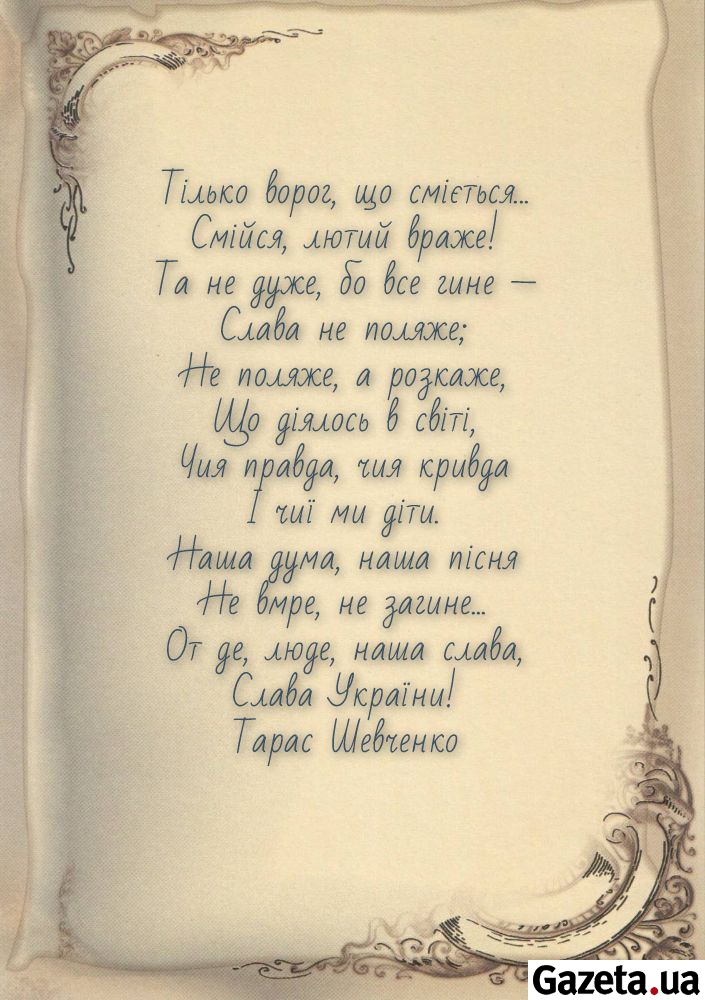 Тілько ворог, що сміється...
Смійся, лютий враже!
Та не дуже, бо все гине —
Слава не поляже;
Не поляже, а розкаже,
Що діялось в світі,
Чия правда, чия кривда
І чиї ми діти.
Наша дума, наша пісня
Не вмре, не загине...
От де, люде, наша слава,
Слава України!
Тарас Шевченко
Gazeta.ua